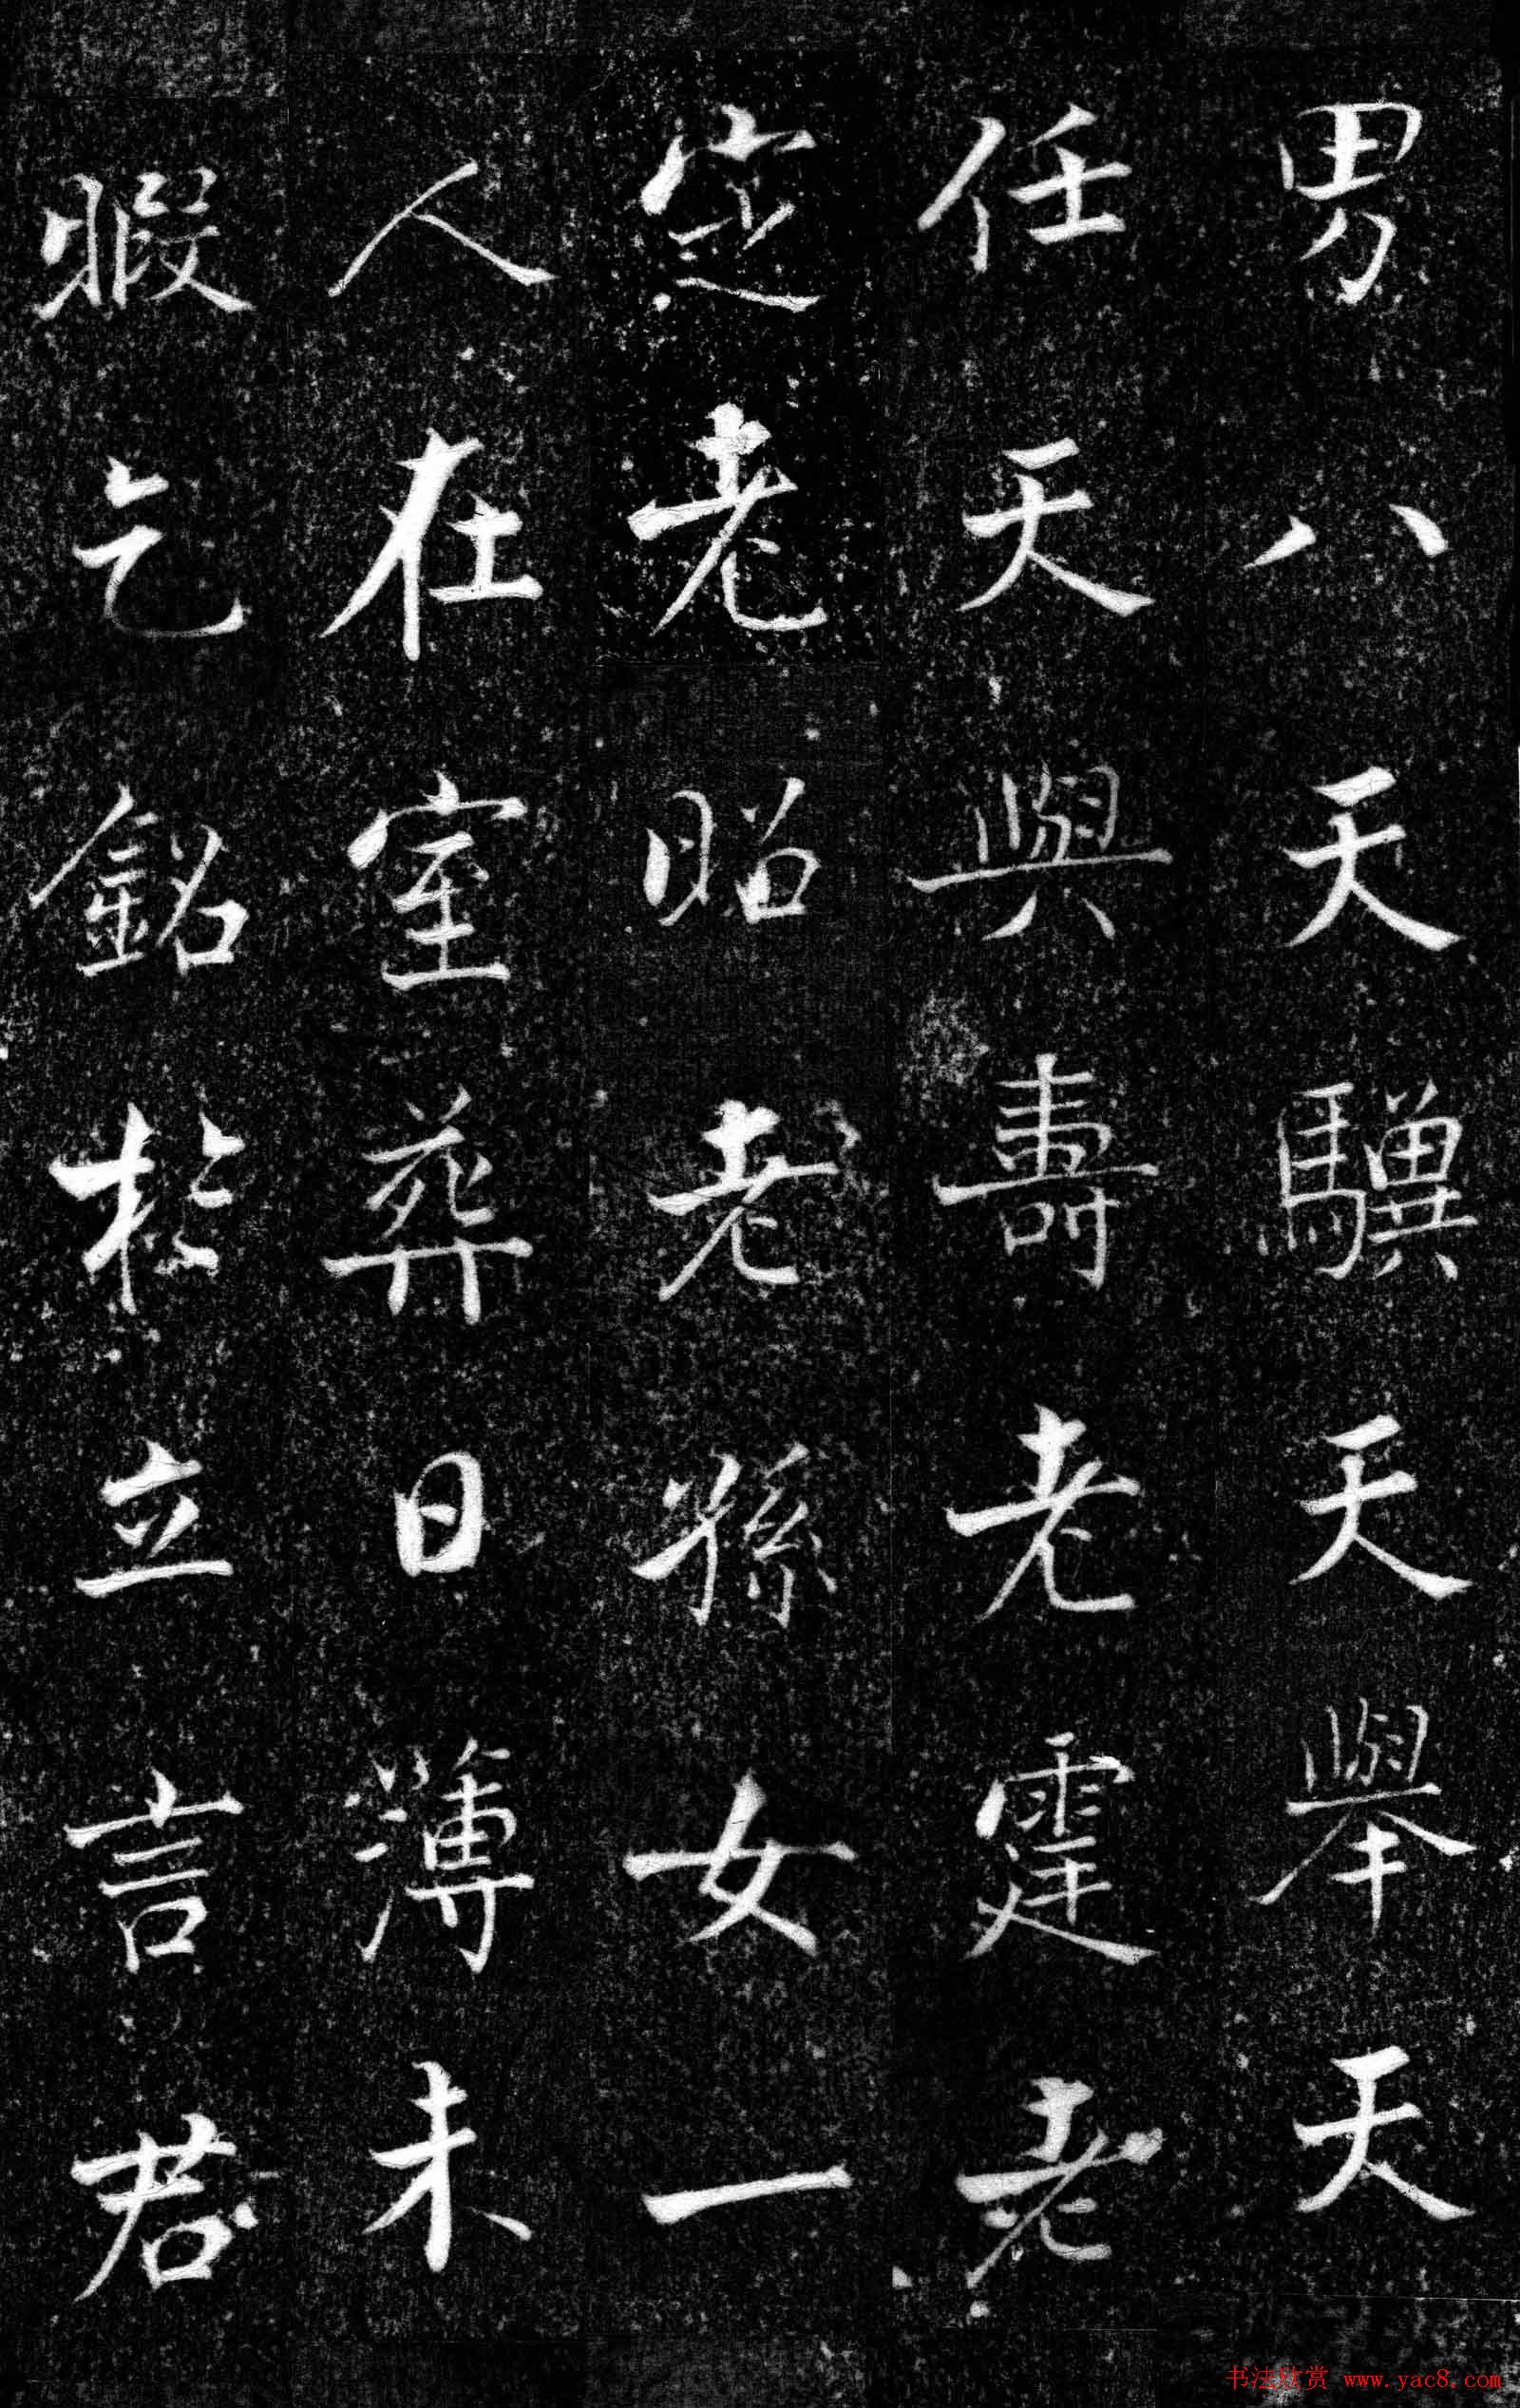 男八天驥天舉天
任天與壽老霆老
定老昭老孫女一
人在室葬日薄未
暇乞銘於立言君
书法欣赏 www.yac8.com